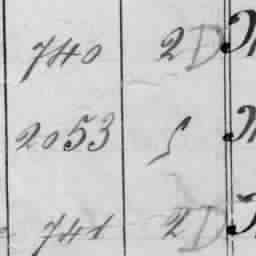 740 2D
2053 5
741 2D